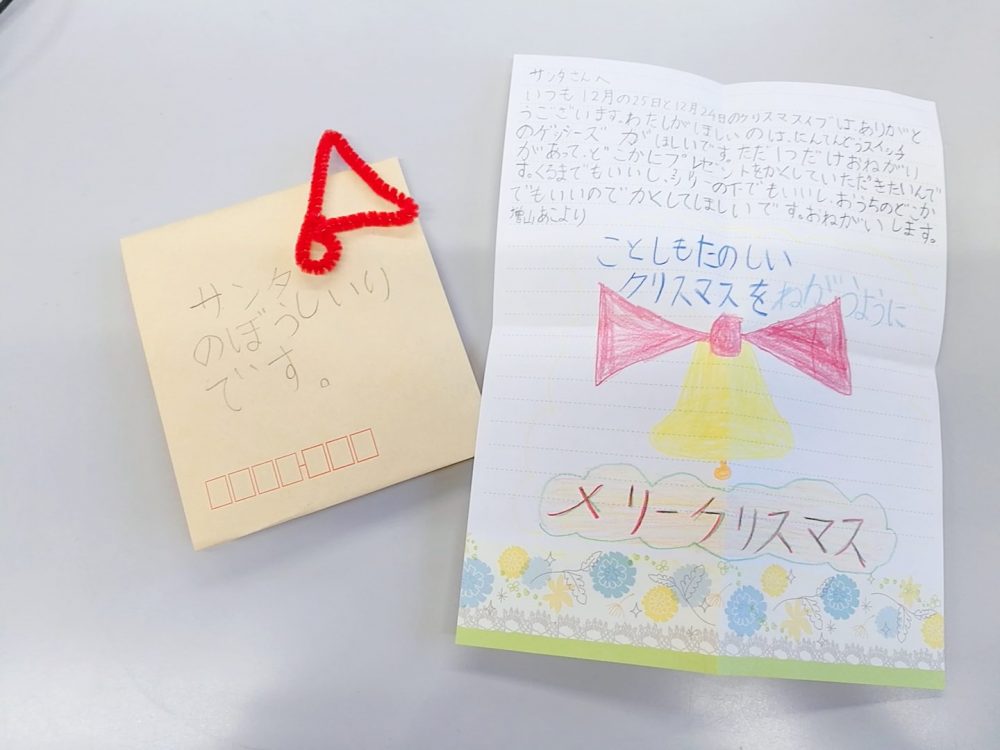 サンタ
のぼうしいり
です。
サンタさんへ
いつも12月の25日と12月24日のクリスマスイブは、ありがと
うございます。わたしがほしいのは、にんてんどうスイッチ
の がほしいです。ただ1つだけおねがい
があって、どこかにプレゼントをかくしていただきたいんで
す。くるまでもいいし、ツリーの下でもいいし、おうちのどこか
でもいいのでかくしてほしいです。おねがいします。
増山あこより
ことしもたのしい
クリスマスをねがうように
メリークリスマス